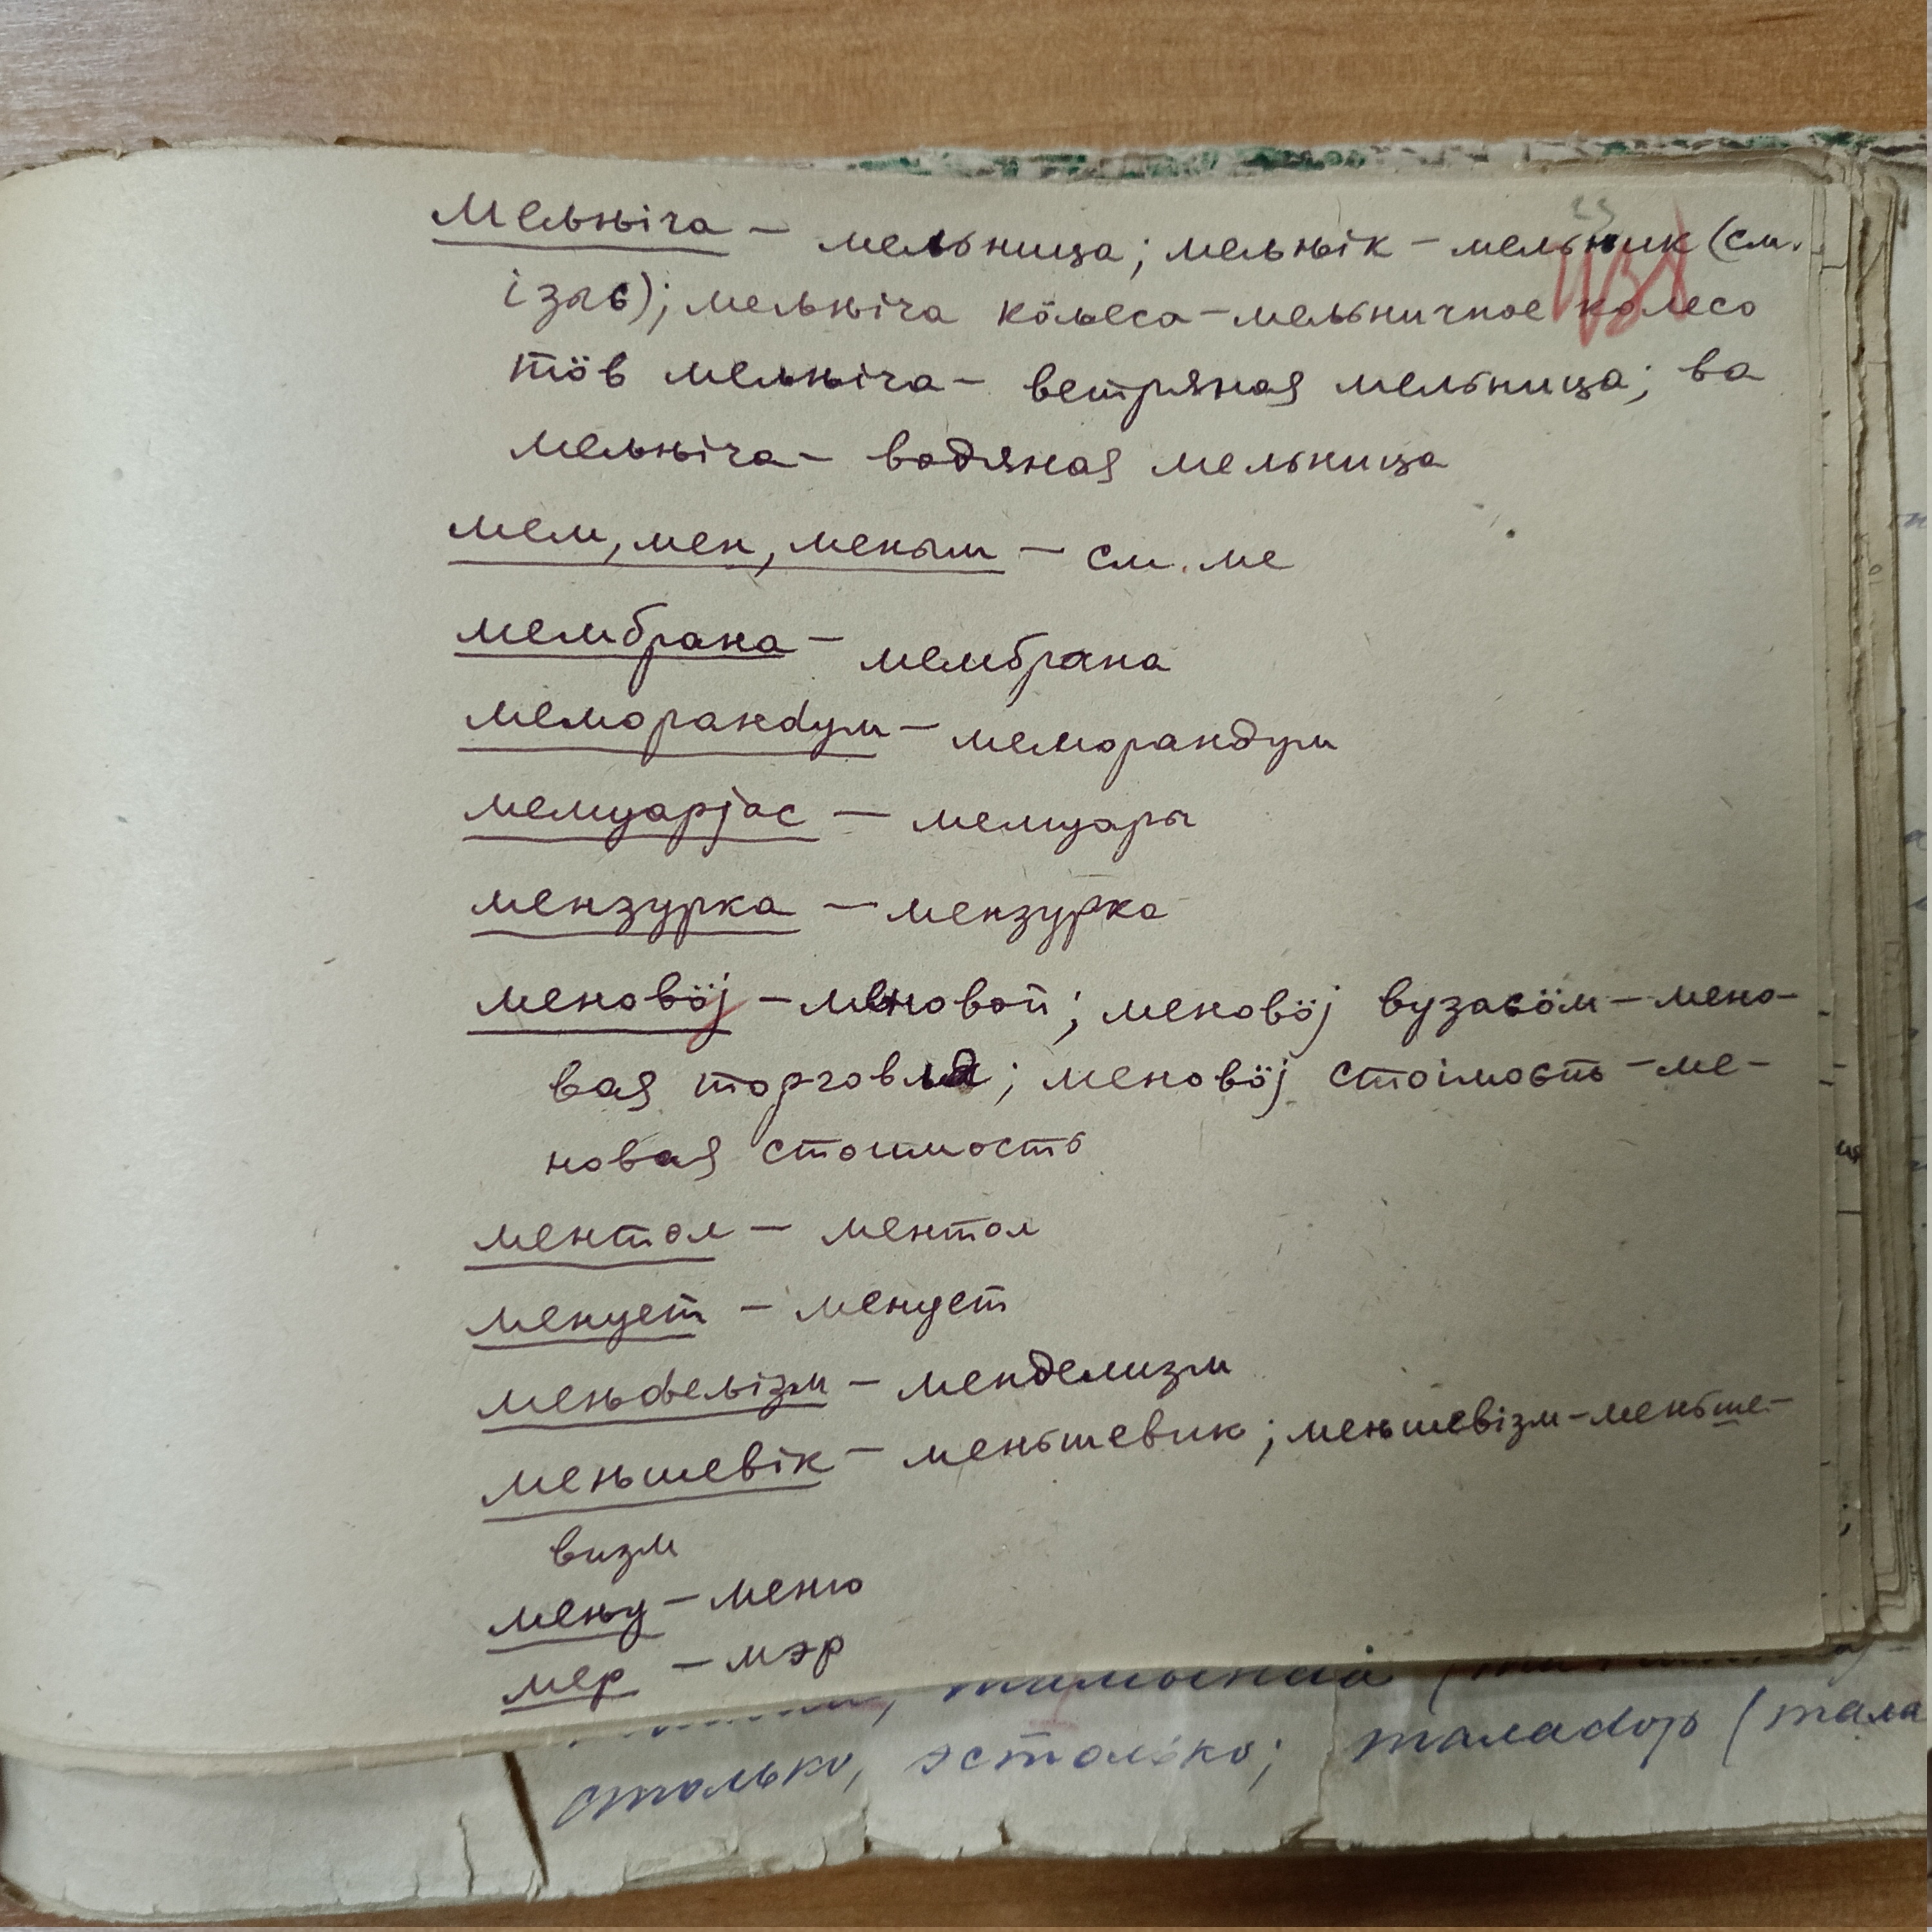 Меԉԋіча – мельница; меԉԋік – мельник (см.
ізыԍ); меԉԋіча кӧԉеса – мельничное колесо
тӧв меԉԋіча – ветряная мельница; ва
меԉԋіча – водяная мельница
мем, мен, меным – см. ме
мембрана – мембрана
меморанԁум – меморандум
мемуарјас – мемуары
мензурка – мензурка
меновӧј – меновой; меновӧј вузаԍӧм – мено-
вая торговля; меновӧј стоімоԍԏ – ме-
новая стоимость
ментол – ментол
менует – менует
меԋԃеԉізм – менделизм
меԋшевік – меньшевик; меԋшевізм – меньше-
визм
меԋу – меню
мер – мэр
столько, эстолько; талаԁор (тала